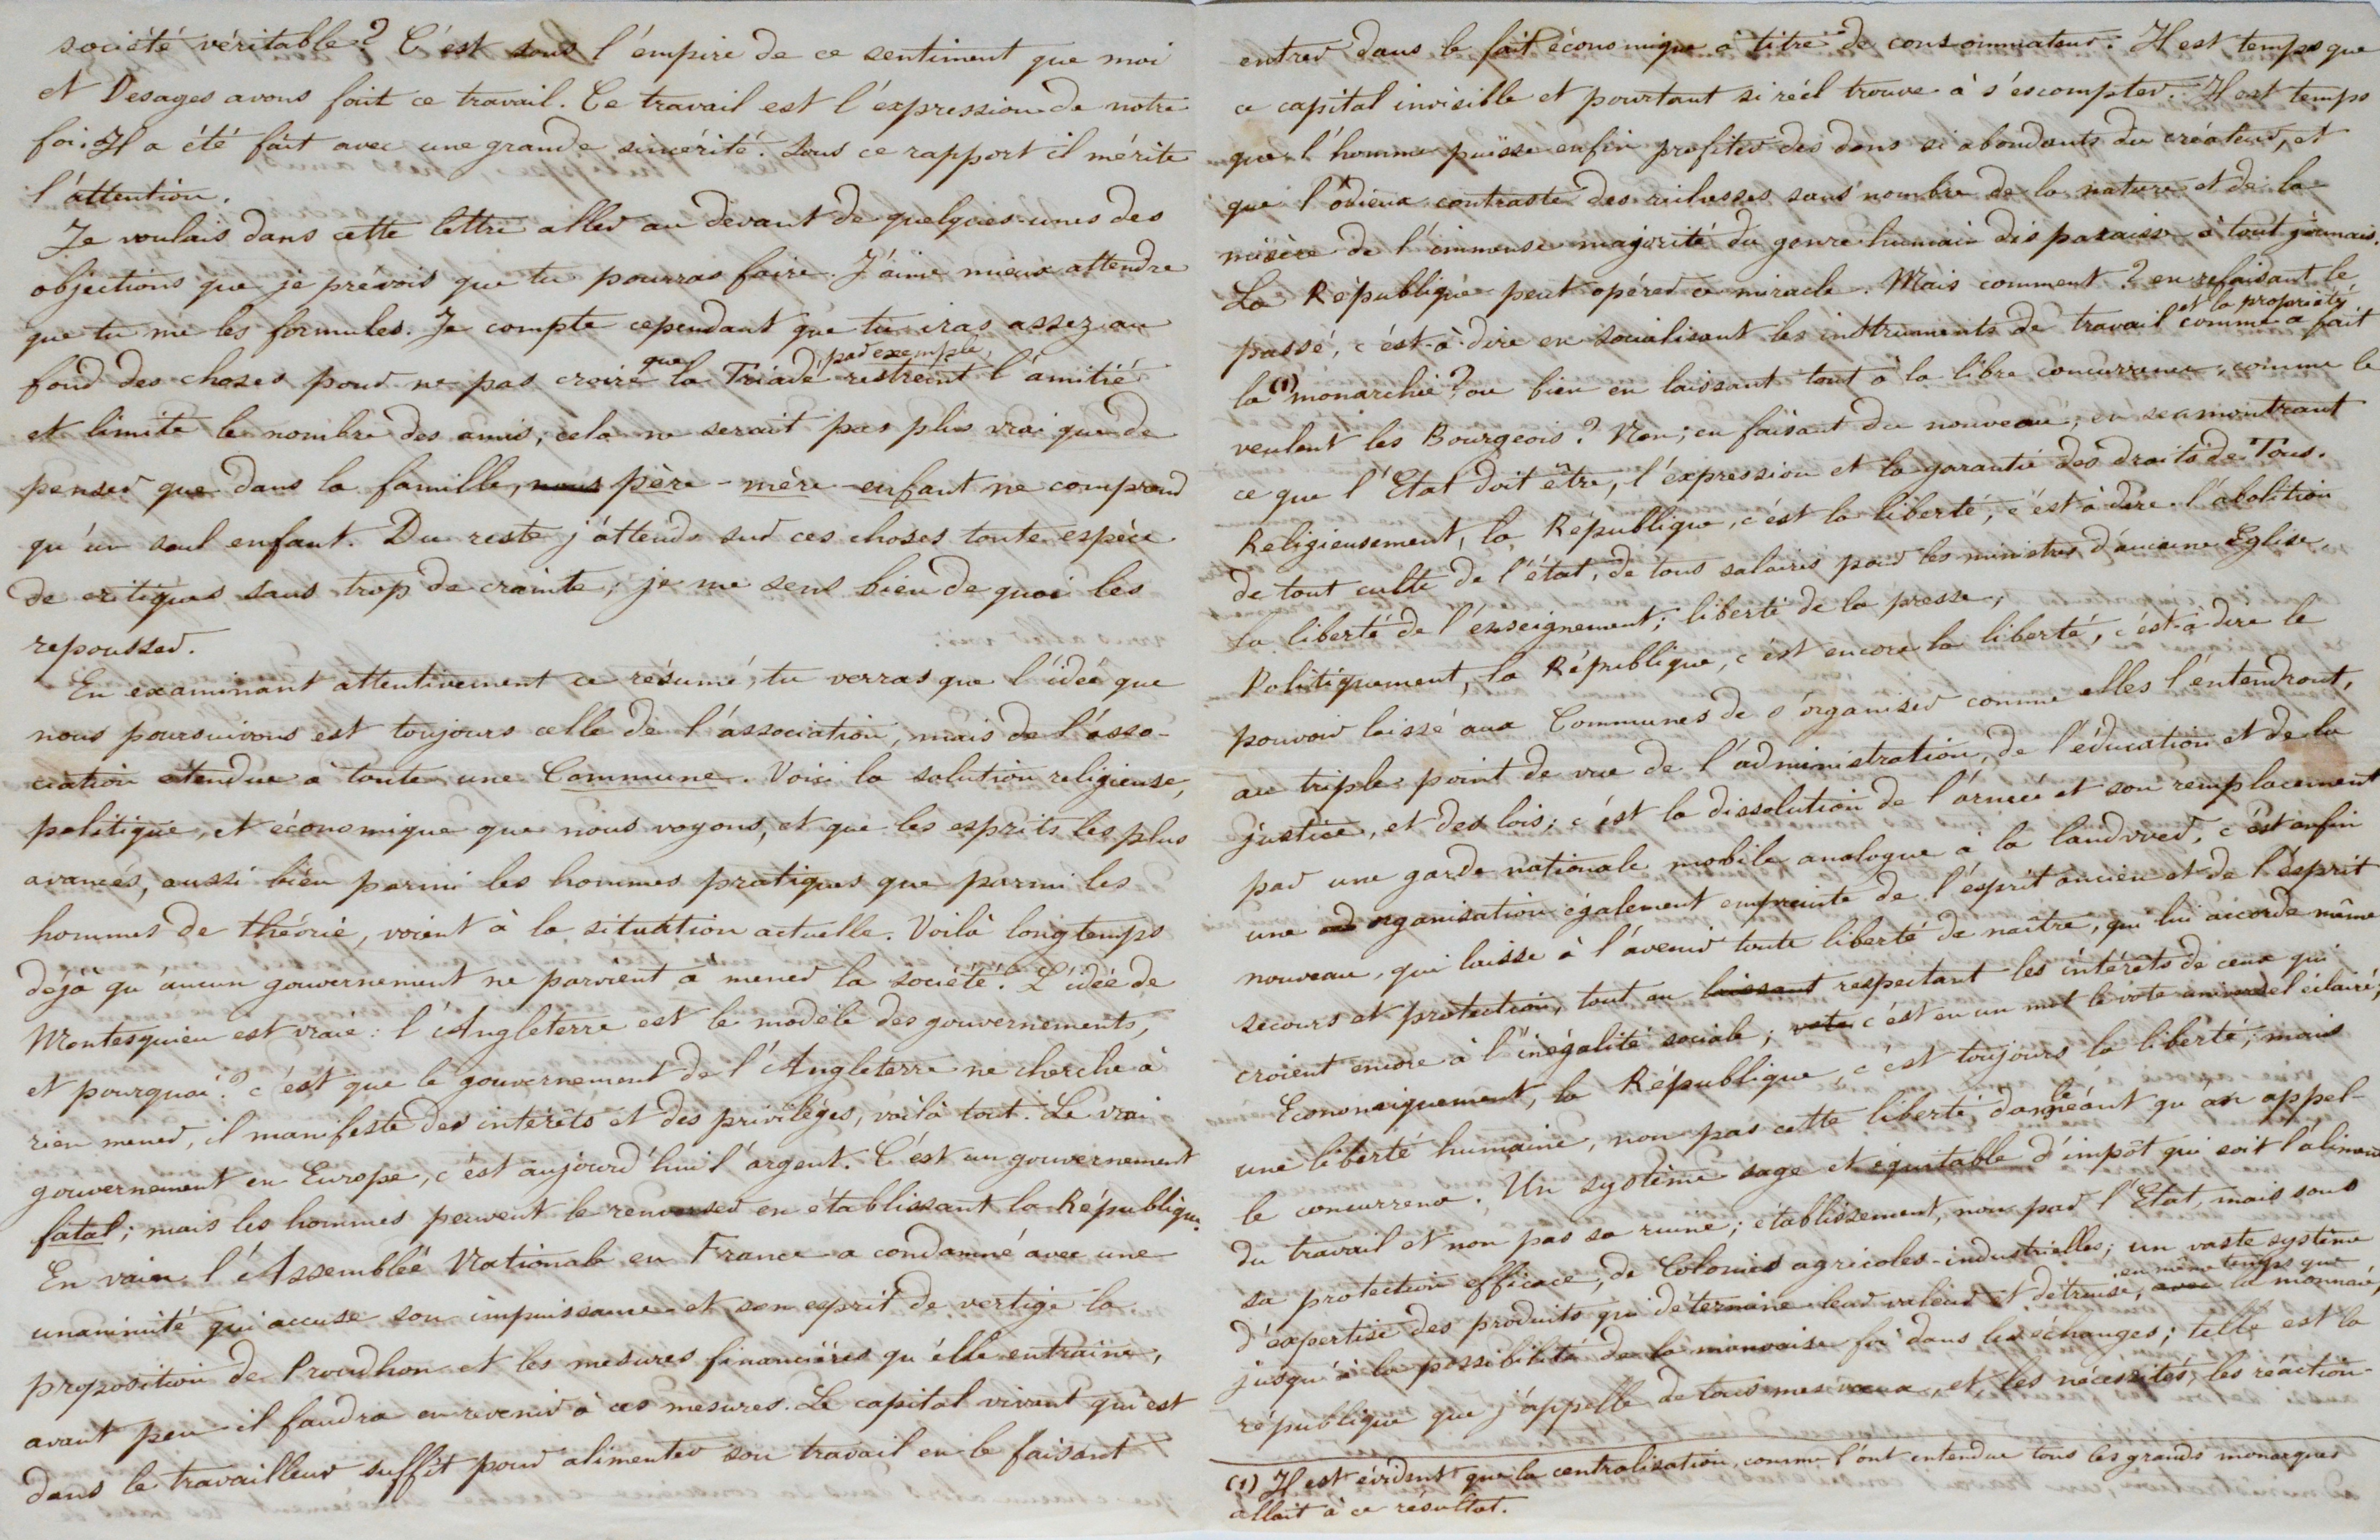 société véritable? C'est sous l'empire de ce sentiment que moi
et Desages avons fait ce travail. Ce travail est l'expression de notre
foi. Il a été fait avec une grande sincérité. Sous ce rapport il mérite
l'attention.
Je voulais dans cette lettre aller au devant de quelques-unes des
objections que je prévois que tu pourras faire. J'aime mieux attendre
que tu me les formules. Je compte cependant que tu iras assez au
fond des choses pour ne pas croire que la Triade, par exemple, restreint l'amitié
et limite le nombre des amis; cela ne serait pas plus vrai que de
penser que dans la famille, nous père-mère-enfant ne comprend
qu'un seul enfant. Du reste j'attends sur ces choses toute espèce
de critiques sans trop de crainte; je me sens bien de quoi les
repousser.
En examinant attentivement ce résumé, tu verras que l'idée que
nous poursuivons est toujours celle de l'association, mais de l'asso-
ciation étendue à toute une Commune. Voici la solution religieuse,
politique, et économique que nous voyons, et que les esprits les plus
avancés, aussi bien parmi les hommes pratiques que parmi les
hommes de théorie, voient à la situation actuelle. Voilà longtemps
déjà qu'aucun gouvernement ne parvient à mener la société. L'idée de
Montesquieu est vraie: l'Angleterre est le modèle des gouvernements,
et pourquoi? c'est que le gouvernement de l'Angleterre ne cherche à
rien mener, il manifeste des intérêts et des privilèges, voilà tout. Le vrai
gouvernement en Europe, c'est aujourd'hui l'argent. C'est un gouvernement
fatal; mais les hommes peuvent le renverser en établissant la République.
En vain l'Assemblée Nationale en France a condamné avec une
unanimité qui accuse son impuissance et son esprit de vertige la
proposition de Proudhon et les mesures financières qu'elle entraine,
avant peu il faudra en revenir à ces mesures. Le capital vivant qui est
dans le travailleur suffit pour alimenter son travail en le faisant
entrer dans le fait économique à titre de consommateur. Il est temps que
ce capital invisible et pourtant si réel trouve à s'escompter. Il est temps
que l'homme puisse enfin profiter des dons si abondants du créateur, et
que l'odieux contraste des richesses sans nombre de la nature et de la
misère de l'immense majorité du genre humain disparaisse à tout jamais.
La République peut opérer ce miracle. Mais comment? en refaisant le
passé, c'est-à-dire en socialisant les instruments de travail et la propriété, comme a fait
la (1) monarchie? ou bien en laissant tout à la libre concurrence, comme le
veulent les Bourgeois? Non; en faisant du nouveau; en se montrant
ce que l'Etat doit être, l'expression et la garantie des droits de Tous.
Religieusement, la République, c'est la liberté, c'est à dire l'abolition
de tout culte de l'état, de tous salaires pour les ministres d'aucune Eglise,
la liberté de l'enseignement; liberté de la presse;
Politiquement, la République, c'est encore la liberté, c'est-à-dire le
pouvoir laissé aux Communes de s'organiser comme elles l'entendront,
au triple point de vue de l'administration, de l'éducation et de la
justice, et des lois; c'est la dissolution de l'armée et son remplacement
par une garde nationale mobile analogue à la landwer, c'est enfin
une organisation également empreinte de l'esprit ancien et de l'esprit
nouveau, qui laisse à l'avenir toute liberté de naître, qui lui accorde même
secours et protection, tout en laissant respectant les intérêts de ceux qui
croient encore à l'inégalité sociale; vote c'est en un mot le vote universel éclairé;
Economiquement, la République, c'est toujours la liberté, mais
une liberté humaine, non pas cette liberté du néant qu'on appel-
le concurrence. Un système sage et équitable d'impôt qui soit l'aliment
du travail et non pas sa ruine; établissement, non par l'Etat, mais sous
sa protection efficace, de Colonies agricoles-industrielles; un vaste système
d'expertise des produits qui détermine leur valeur et détruise, en même temps que avec la monnaie,
jusqu'à la possibilité de la mauvaise foi dans les échanges; telle est la
république que j'appelle de tous mes vœux, et les nécessités, les réaction-
(1) Il est évident que la centralisation, comme l'ont entendue tous les grands monarques
allait à ce résultat.